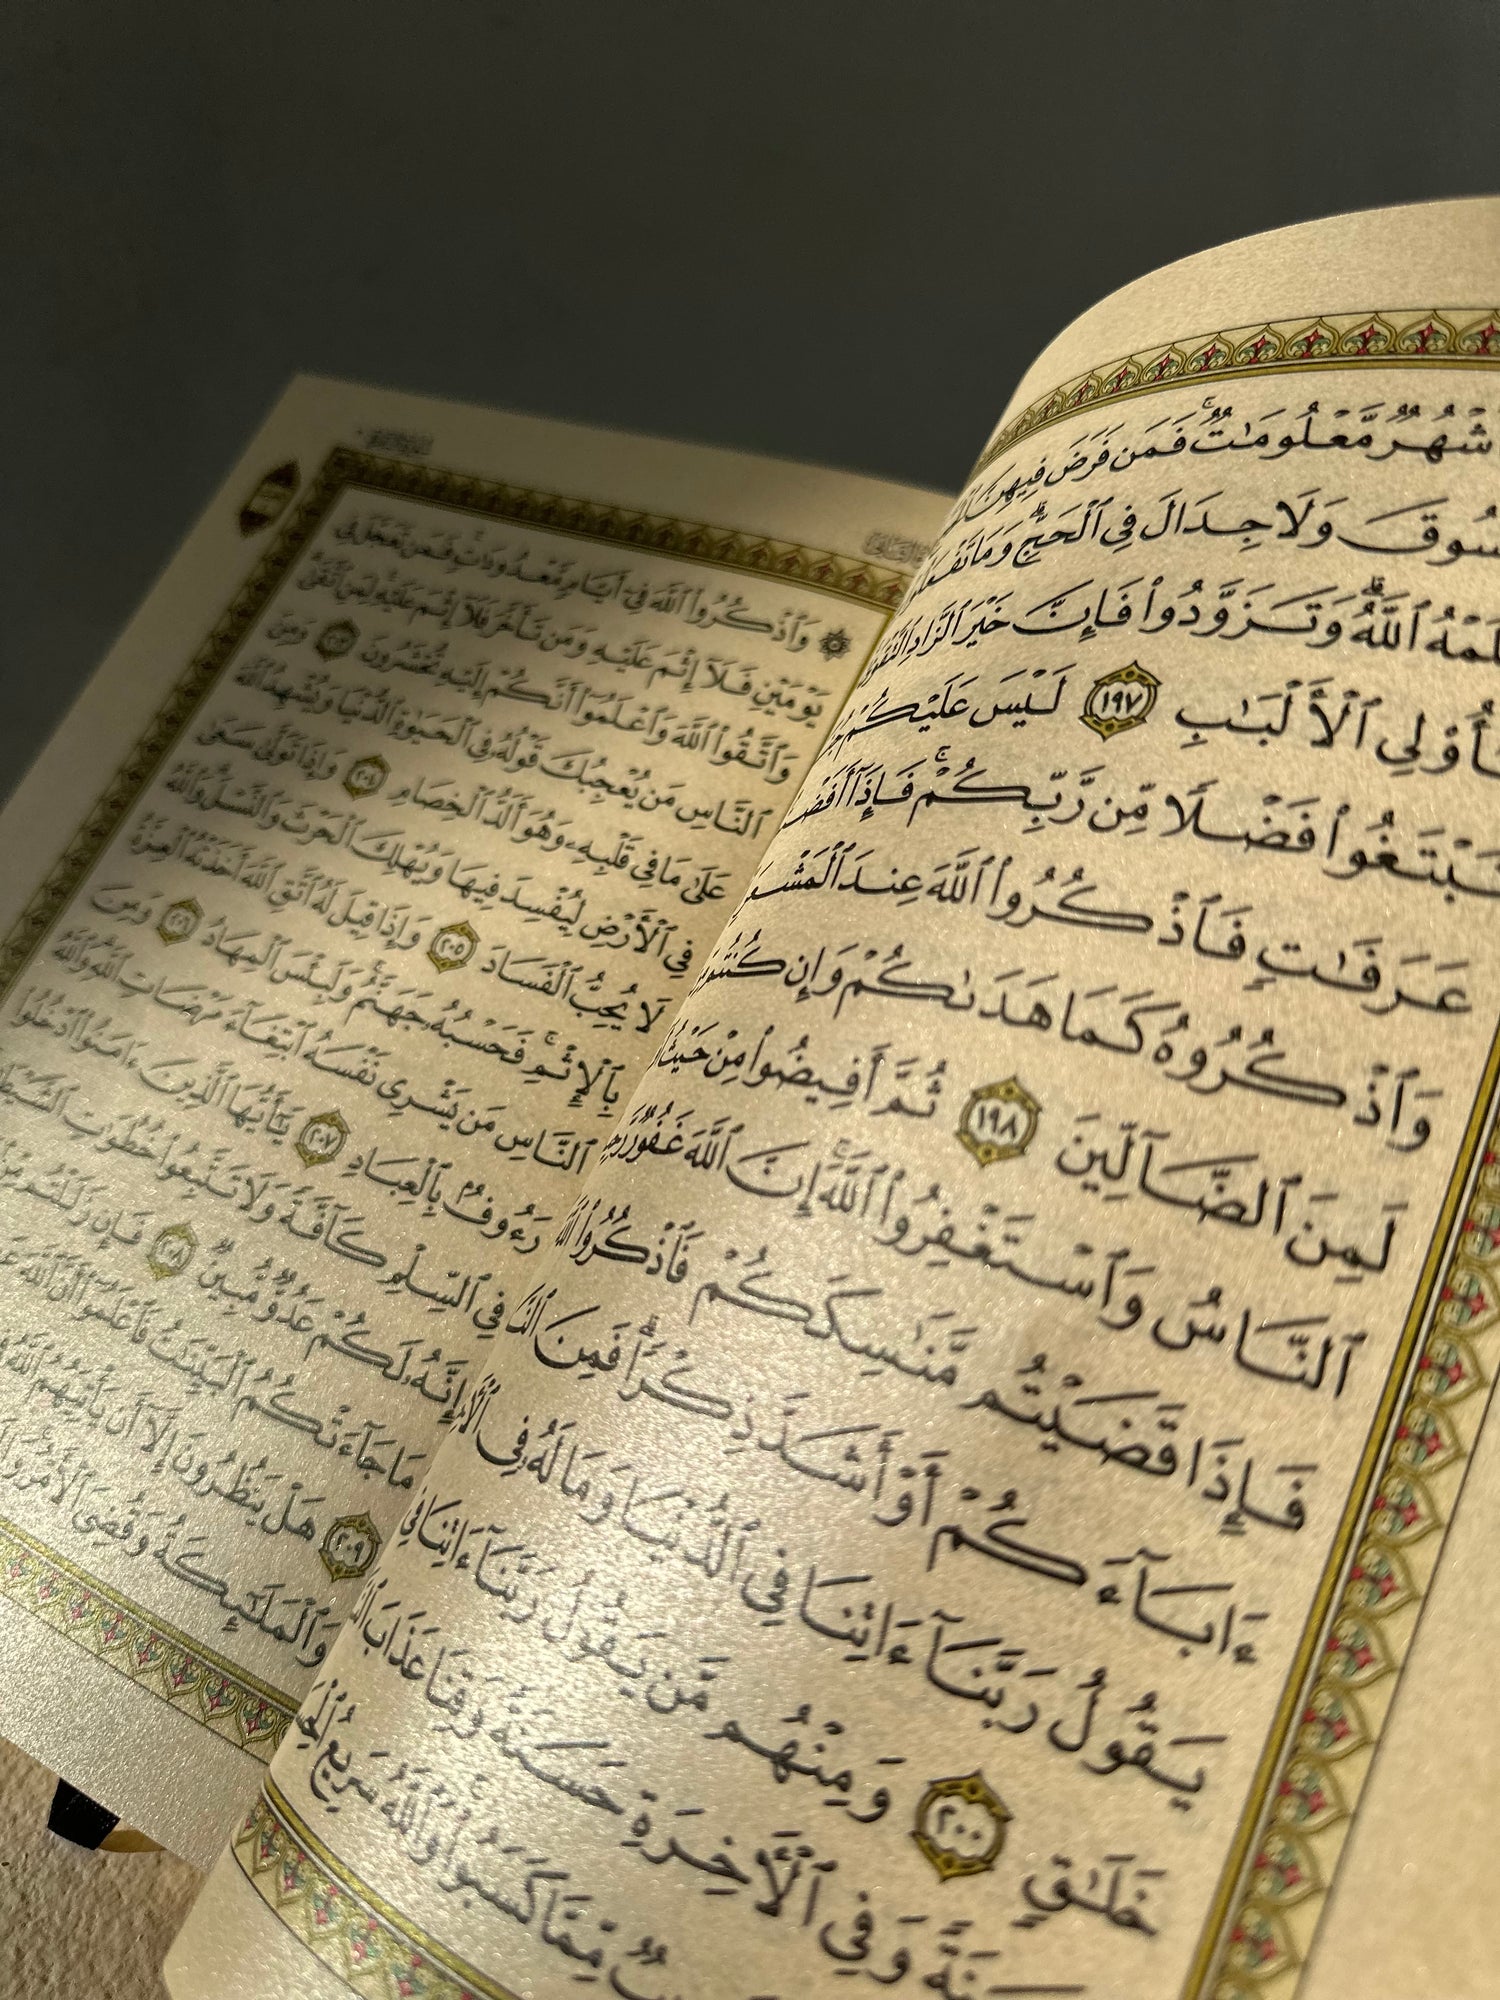 شْهُرٌ مَّعْلُومَٰتٌ ۚ فَمَن فَرَضَ فِيهِنَّ
سُوقَ وَلَا جِدَالَ فِي ٱلْحَجِّ ۗ وَمَا تَفْعَلُ
لَمْهُ ٱللَّهُ ۗ وَتَزَوَّدُوا۟ فَإِنَّ خَيْرَ ٱلزَّادِ ٱلتَّقْوَ
يَٰٓأُو۟لِي ٱلْأَلْبَٰبِ ١٩٧ لَيْسَ عَلَيْكُمْ
تَبْتَغُوا۟ فَضْلًا مِّن رَّبِّكُمْ ۚ فَإِذَآ أَفَضْ
عَرَفَٰتٍ فَٱذْكُرُوا۟ ٱللَّهَ عِندَ ٱلْمَشْ
وَٱذْكُرُوهُ كَمَا هَدَىٰكُمْ وَإِن كُنتُم
لَمِنَ ٱلضَّآلِّينَ ١٩٨ ثُمَّ أَفِيضُوا۟ مِنْ حَيْثُ
ٱلنَّاسُ وَٱسْتَغْفِرُوا۟ ٱللَّهَ ۚ إِنَّ ٱللَّهَ غَفُورٌ
فَإِذَا قَضَيْتُم مَّنَٰسِكَكُمْ فَٱذْكُرُوا۟ ٱللَّ
ءَابَآءَكُمْ أَوْ أَشَدَّ ذِكْرًا ۗ فَمِنَ ٱلنَّ
يَقُولُ رَبَّنَآ ءَاتِنَا فِي ٱلدُّنْيَا وَمَا لَهُۥ فِي ٱلْأ
خَلَٰقٍ ٢٠٠ وَمِنْهُم مَّن يَقُولُ رَبَّنَآ ءَاتِنَا فِي
سَنَةً وَفِي ٱلْأَخِرَةِ حَسَنَةً وَقِنَا عَذَابَ ٱل
بٌ مِّمَّا كَسَبُوا۟ ۚ وَٱللَّهُ سَرِيعُ ٱلْحِ
۞ وَٱذْكُرُوا۟ ٱللَّهَ فِيٓ أَيَّامٍ مَّعْدُودَٰتٍ ۚ فَمَن تَعَجَّلَ فِي
يَوْمَيْنِ فَلَآ إِثْمَ عَلَيْهِ وَمَن تَأَخَّرَ فَلَآ إِثْمَ عَلَيْهِ ۚ لِمَنِ ٱتَّقَىٰ ۗ
وَٱتَّقُوا۟ ٱللَّهَ وَٱعْلَمُوٓا۟ أَنَّكُمْ إِلَيْهِ تُحْشَرُونَ ٢٠٣ وَمِنَ
ٱلنَّاسِ مَن يُعْجِبُكَ قَوْلُهُۥ فِي ٱلْحَيَوٰةِ ٱلدُّنْيَا وَيُشْهِدُ ٱللَّهَ
عَلَىٰ مَا فِي قَلْبِهِۦ وَهُوَ أَلَدُّ ٱلْخِصَامِ ٢٠٤ وَإِذَا تَوَلَّىٰ سَعَىٰ
فِي ٱلْأَرْضِ لِيُفْسِدَ فِيهَا وَيُهْلِكَ ٱلْحَرْثَ وَٱلنَّسْلَ ۗ وَٱللَّهُ
لَا يُحِبُّ ٱلْفَسَادَ ٢٠٥ وَإِذَا قِيلَ لَهُ ٱتَّقِ ٱللَّهَ أَخَذَتْهُ ٱلْعِزَّةُ
بِٱلْإِثْمِ ۚ فَحَسْبُهُۥ جَهَنَّمُ ۚ وَلَبِئْسَ ٱلْمِهَادُ ٢٠٦ وَمِنَ
ٱلنَّاسِ مَن يَشْرِي نَفْسَهُ ٱبْتِغَآءَ مَرْضَاتِ ٱللَّهِ ۗ وَٱللَّهُ
رَءُوفٌۢ بِٱلْعِبَادِ ٢٠٧ يَٰٓأَيُّهَا ٱلَّذِينَ ءَامَنُوا۟ ٱدْخُلُوا۟
فِي ٱلسِّلْمِ كَآفَّةً وَلَا تَتَّبِعُوا۟ خُطُوَٰتِ ٱلشَّيْطَ
إِنَّهُۥ لَكُمْ عَدُوٌّ مُّبِينٌ ٢٠٨ فَإِن زَلَلْتُم مِّنۢ
مَا جَآءَتْكُمُ ٱلْبَيِّنَٰتُ فَٱعْلَمُوٓا۟ أَنَّ ٱللَّهَ
٢٠٩ هَلْ يَنظُرُونَ إِلَّآ أَن يَأْتِيَهُمُ ٱللَّهُ
وَٱلْمَلَٰٓئِكَةُ وَقُضِيَ ٱلْأَمْرُ